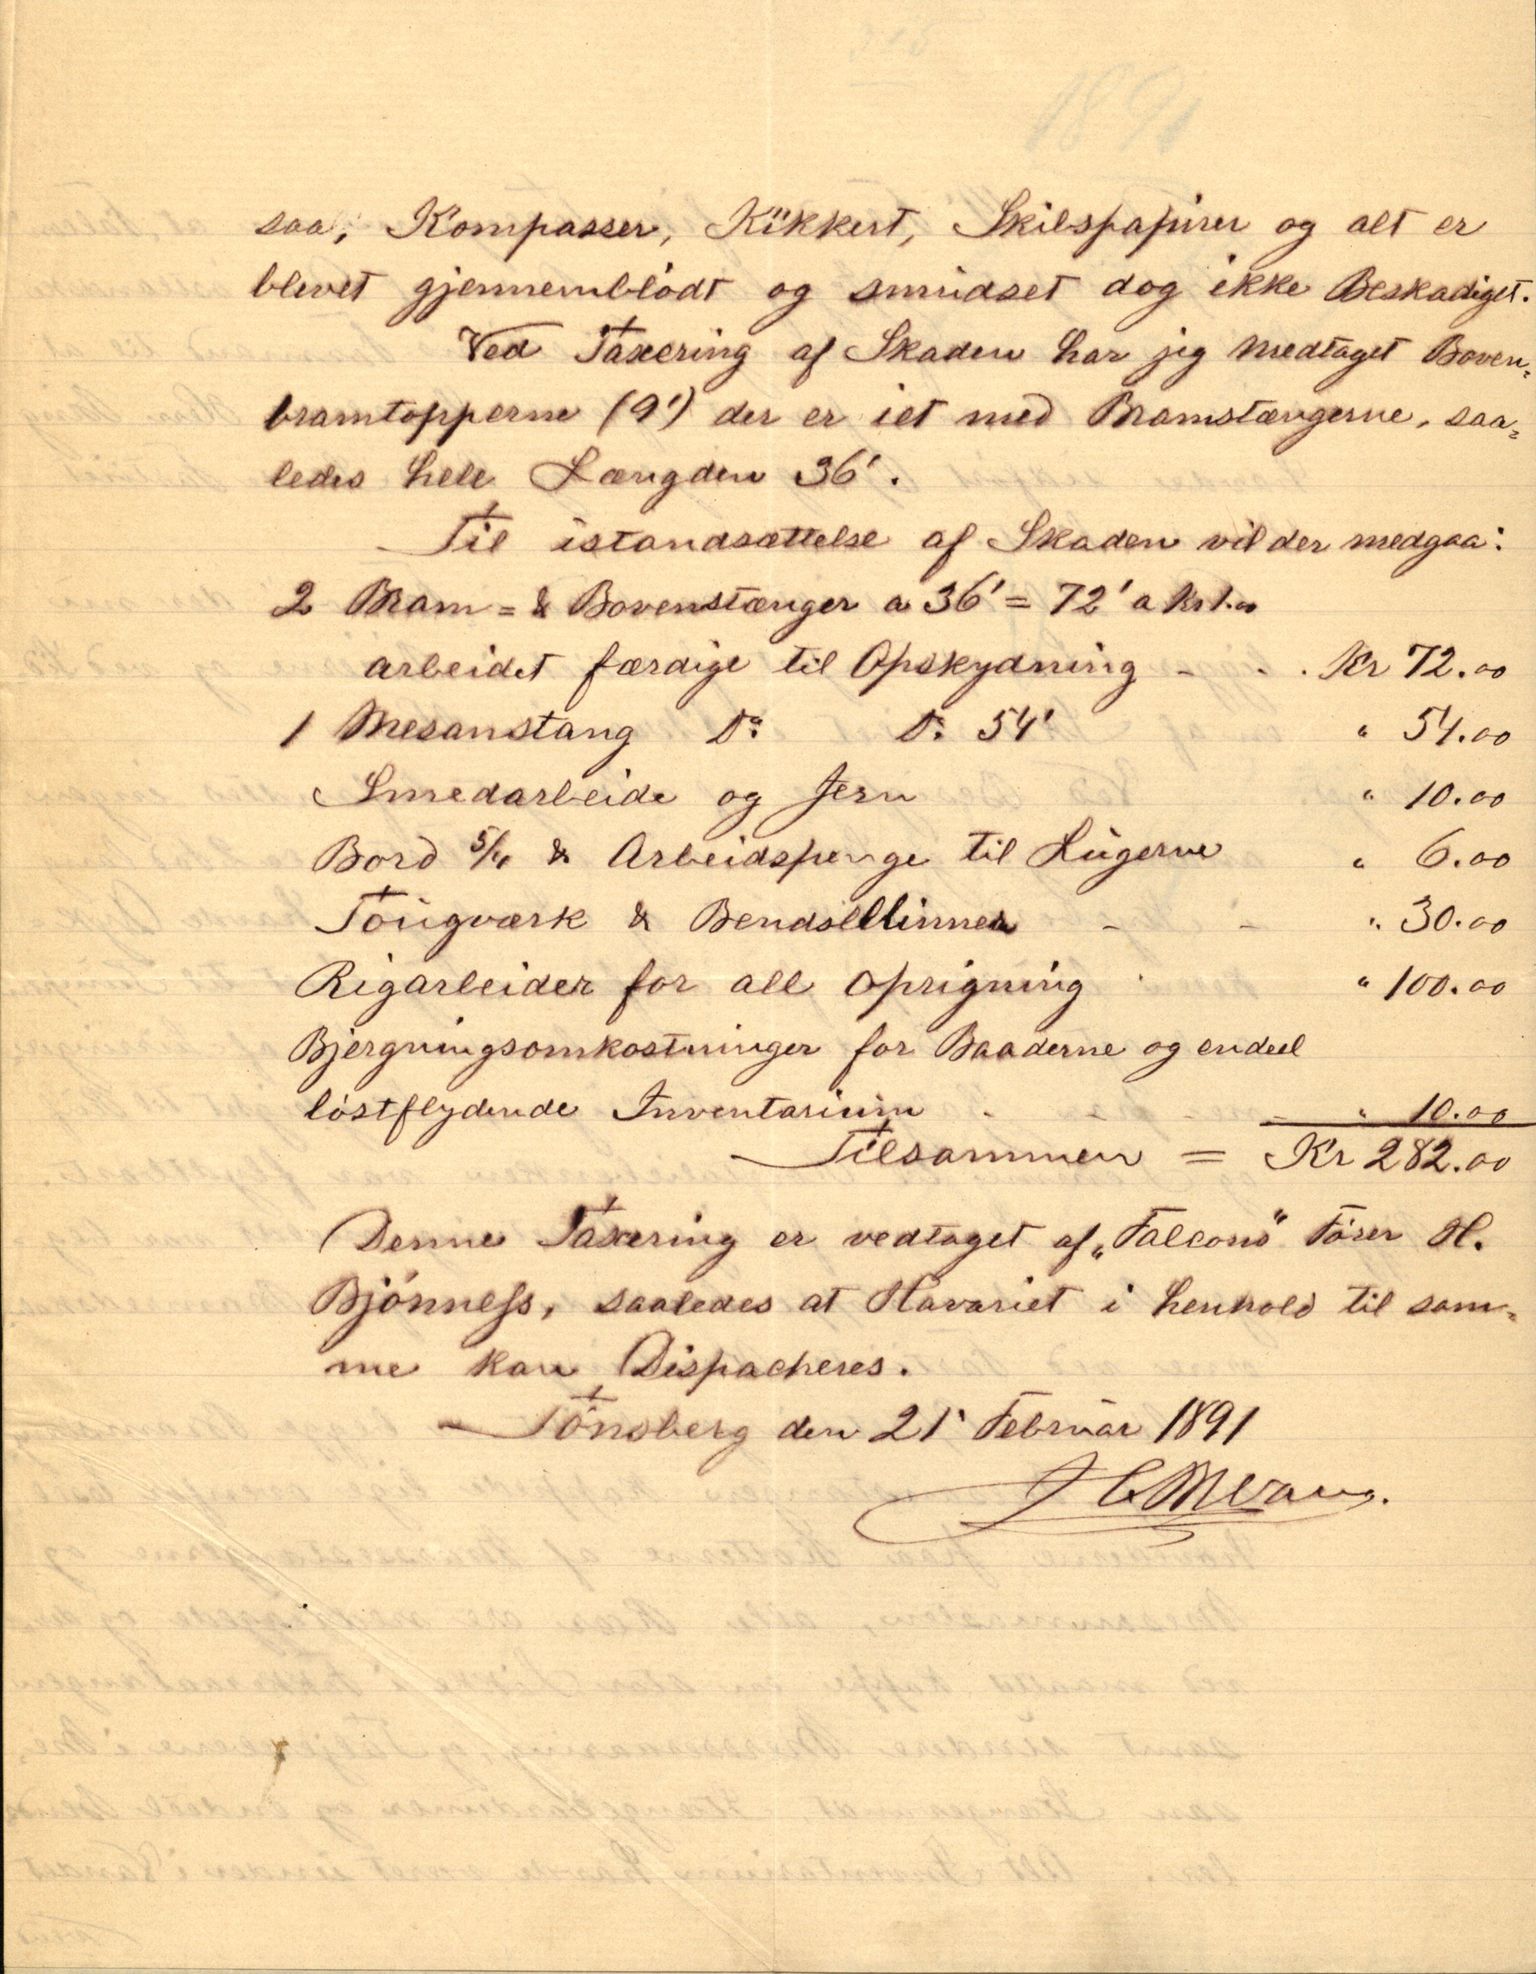 1891
saa, Kompasser, Kikkert, Skibspapirer og alt er
blevet gjennemblödt og smudset dog ikke Beskadiget.
Ved Taxering af Skaden har jeg medtaget Boven=
bramtopperne (9') der er iet med Bramstængerne, saa=
ledes hele Længden 36'.
Til istandsættelse af Skaden vil der medgaa:
2 Bram= & Bovenstænger a 36' = 72' a Kr 1.00
arbeidet færdige til Opskydning - - . Kr 72.00
1 Mesanstang Do. Do. 54' " 54.00
Smedarbeide og Jern " 10.00
Bord 5/4 & Arbeidspenge til Lugerne " 6.00
Tougværk & Bendsellinner - - " 30.00
Rigarbeider for all Oprigning " 100.00
Bjergningsomkostninger for Baaderne og endeel
löstflydende Inventarium - - - - " 10.00
Tilsammen = Kr 282.00
Denne Taxering er vedtaget af „Falcons" Förer H.
Bjönness, saaledes at Havariet i henhold til sam=
me kan Dispacheres.
Tönsberg den 21' Februar 1891